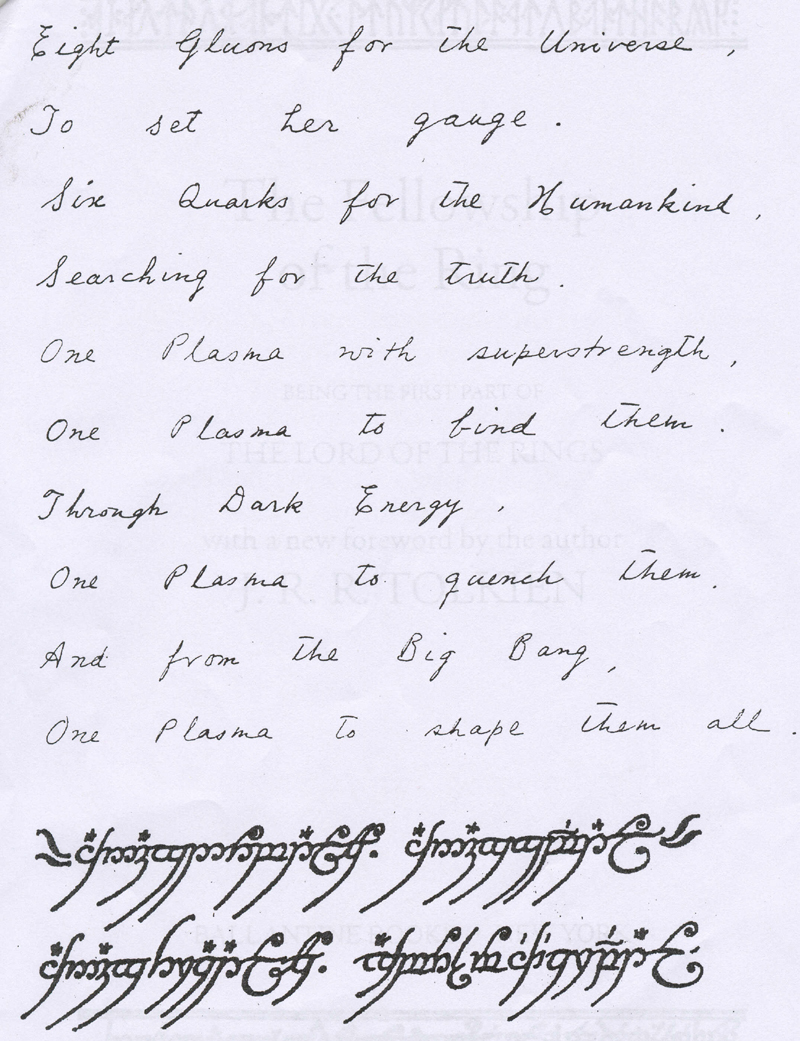 Eight Gluons for the Universe,
To set her gauge.
Six Quarks for the Humankind,
Searching for the truth.
One Plasma with superstrength,
One Plasma to bind them.
Through Dark Energy,
One Plasma to quench them.
And from the Big Bang,
One Plasma to shape them all.
The Fellowship
of the Ring
BEING THE FIRST PART OF
THE LORD OF THE RINGS
with a new foreword by the author
J. R. R. TOLKIEN
BALLANTINE BOOKS NEW YORK